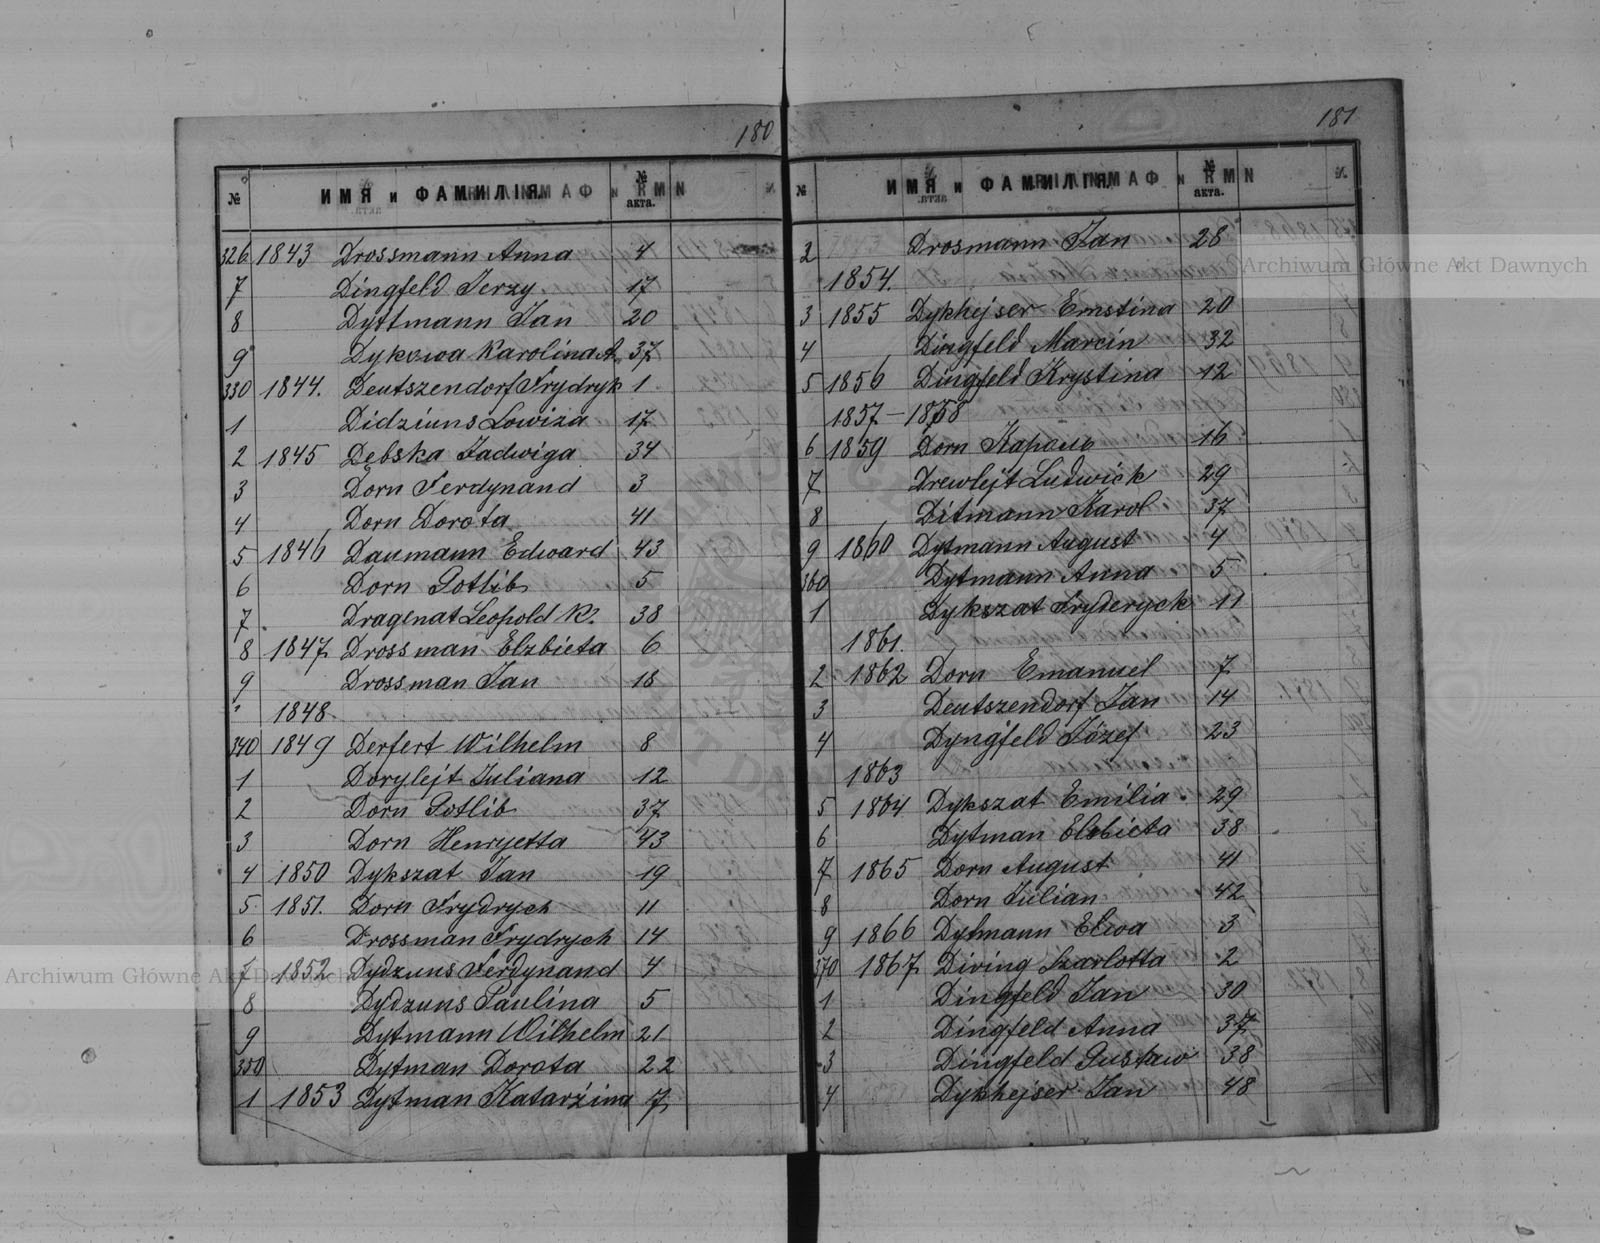 180
№ ИМЯ и ФАМИЛІЯ № акта.
326 1843 Drossmann Anna 4
7 Dingfeld Jerzy 17
8 Dyttmann Jan 20
9 Dykowa Karolina A. 37
330 1844. Deutszendorf Frydryk 1
1 Didziuns Lowiza 17
2 1845 Dębska Jadwiga 34
3 Dorn Ferdynand 3
4 Dorn Dorota 41
5 1846 Daumann Edward 43
6 Dorn Gotlib 5
7 Dragenat Leopold K. 38
8 1847 Drossman Elzbieta 6
9 Drossman Jan 18
1848
340 1849 Derfert Wilhelm 8
1 Dorylejt Juliana 12
2 Dorn Gotlib 37
3 Dorn Henryetta 43
4 1850 Dykszat Jan 19
5 1851. Dorn Frydrych 11
6 Drossman Frydrych 14
7 1852 Dydzuns Ferdynand 4
8 Dydzuns Paulina 5
9 Dytmann Wilhelm 21
350 Dytman Dorota 22
1 1853 Dytman Katarzina 7
181
№ ИМЯ и ФАМИЛІЯ № акта.
2 Drosmann Jan 28
1854.
3 1855 Dykhejser Ernstina 20
4 Dingfeld Marcin 32
5 1856 Dingfeld Krystina 12
1857-1858
6 1859 Dorn 16
7 Drewlejt Ludwick 29
8 Ditmann Karol 37
9 1860 Dytmann August 4
360 Dytmann Anna 5
1 Dykszat Fryderyck 11
1861.
2 1862 Dorn Emanuel 7
3 Deutszendorf Jan 14
4 Dyngfeld Józef 23
1863
5 1864 Dykszat Emilia 29
6 Dytman Elzbieta 38
7 1865 Dorn August 41
8 Dorn Julian 42
9 1866 Dytmann Ewa 3
370 1867 Diving Szarlotta 2
1 Dingfeld Jan 30
2 Dingfeld Anna 37
3 Dingfeld Gustaw 38
4 Dykhejser Jan 48
Archiwum Główne Akt Dawnych
Archiwum Główne Akt Dawnych